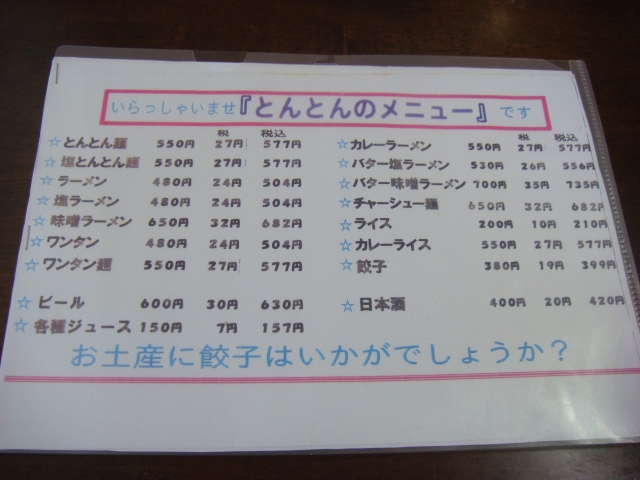 いらっしゃいませ『とんとんのメニュー』です
税 税込
☆とんとん麺 550円 27円 577円
☆塩とんとん麺 550円 27円 577円
☆ラーメン 480円 24円 504円
☆塩ラーメン 480円 24円 504円
☆味噌ラーメン 650円 32円 682円
☆ワンタン 480円 24円 504円
☆ワンタン麺 550円 27円 577円
☆ビール 600円 30円 630円
☆各種ジュース 150円 7円 157円
税 税込
☆カレーラーメン 550円 27円 577円
☆バター塩ラーメン 530円 26円 556円
☆バター味噌ラーメン 700円 35円 735円
☆チャーシュー麺 650円 32円 682円
☆ライス 200円 10円 210円
☆カレーライス 550円 27円 577円
☆餃子 380円 19円 399円
☆日本酒 400円 20円 420円
お土産に餃子はいかがでしょうか？